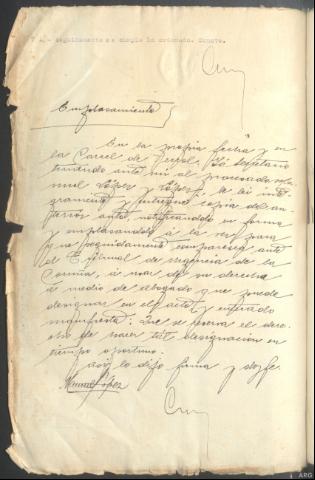 seguidamente se cumple lo ordenado. Conste.
Emplazamiento
En la propia fecha y en
la Carcel de Ferrol. Yo Secretario
teniendo ante mi al procesado Ma-
nuel López y López, le leí inte-
gramente y entregué copia del an-
terior auto, notificandolo en forma
y emplazandolo á la vez para
que seguidamente comparezca ante
el Tribunal de urgencia de la
Coruña, á usar de su derecho
de medio de abogado que puede
designar en el acto, y enterado
manifiesta: Que se reserva el dere-
cho de hacer tal designación en
tiempo oportuno.
Así lo dijo firma y doy fe
Manuel López
ARG